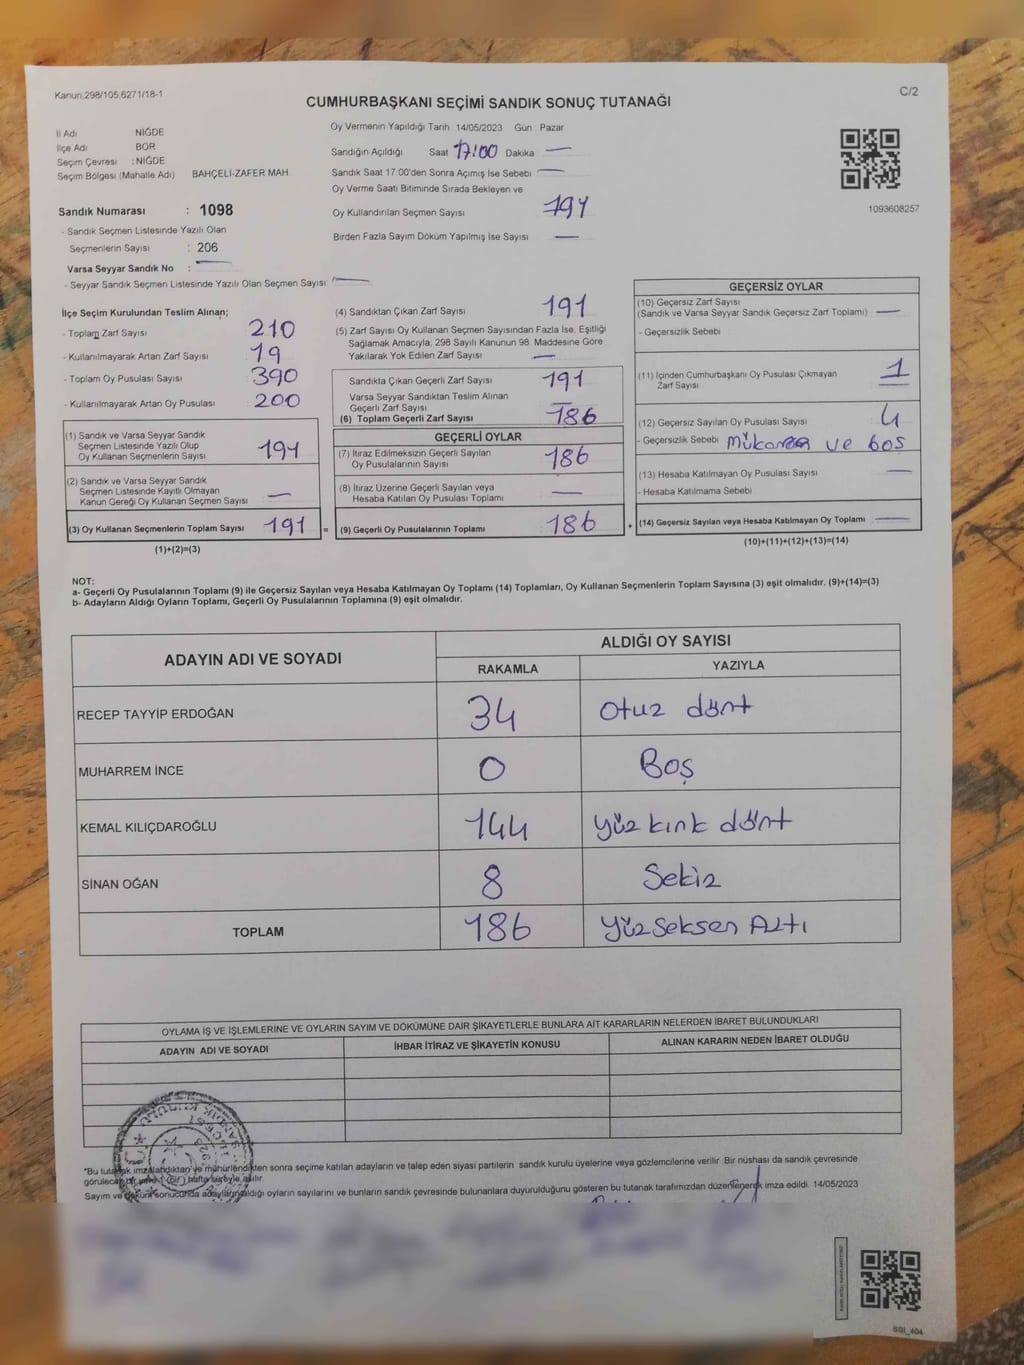 Kanun.298/105,6271/18-1
C/2
CUMHURBAŞKANI SEÇİMİ SANDIK SONUÇ TUTANAĞI
İl Adı NİĞDE
İlçe Adı BOR
Seçim Çevresi : NİĞDE
Seçim Bölgesi (Mahalle Adı) BAHÇELİ-ZAFER MAH.
Sandık Numarası : 1098
- Sandık Seçmen Listesinde Yazılı Olan
Seçmenlerin Sayısı : 206
Varsa Seyyar Sandık No : —
- Seyyar Sandık Seçmen Listesinde Yazılı Olan Seçmen Sayısı: —
Oy Vermenin Yapıldığı Tarih 14/05/2023 Gün : Pazar
Sandığın Açıldığı Saat 17:00 Dakika —
Sandık Saat 17:00'den Sonra Açımış İse Sebebi —
Oy Verme Saati Bitiminde Sırada Bekleyen ve
Oy Kullandırılan Seçmen Sayısı 191
Birden Fazla Sayım Döküm Yapılmış İse Sayısı —
1093608257
İlçe Seçim Kurulundan Teslim Alınan;
- Toplam Zarf Sayısı 210
- Kullanılmayarak Artan Zarf Sayısı 19
- Toplam Oy Pusulası Sayısı 390
- Kullanılmayarak Artan Oy Pusulası 200
(1) Sandık ve Varsa Seyyar Sandık
Seçmen Listesinde Yazılı Olup
Oy Kullanan Seçmenlerin Sayısı 191
(2) Sandık ve Varsa Seyyar Sandık
Seçmen Listesinde Kayıtlı Olmayan
Kanun Gereği Oy Kullanan Seçmen Sayısı —
(3) Oy Kullanan Seçmenlerin Toplam Sayısı 191 =
(1)+(2)=(3)
(4) Sandıktan Çıkan Zarf Sayısı 191
(5) Zarf Sayısı Oy Kullanan Seçmen Sayısından Fazla İse, Eşitliği
Sağlamak Amacıyla, 298 Sayılı Kanunun 98. Maddesine Göre
Yakılarak Yok Edilen Zarf Sayısı —
Sandıkta Çıkan Geçerli Zarf Sayısı 191
Varsa Seyyar Sandıktan Teslim Alınan
Geçerli Zarf Sayısı —
(6) Toplam Geçerli Zarf Sayısı 186
GEÇERLİ OYLAR
(7) İtiraz Edilmeksizin Geçerli Sayılan
Oy Pusulalarının Sayısı 186
(8) İtiraz Üzerine Geçerli Sayılan veya
Hesaba Katılan Oy Pusulası Toplamı —
(9) Geçerli Oy Pusulalarının Toplamı 186 +
GEÇERSİZ OYLAR
(10) Geçersiz Zarf Sayısı
(Sandık ve Varsa Seyyar Sandık Geçersiz Zarf Toplamı) —
- Geçersizlik Sebebi
(11) İçinden Cumhurbaşkanı Oy Pusulası Çıkmayan
Zarf Sayısı 1
(12) Geçersiz Sayılan Oy Pusulası Sayısı 4
- Geçersizlik Sebebi ve boş
(13) Hesaba Katılmayan Oy Pusulası Sayısı —
- Hesaba Katılmama Sebebi
(14) Geçersiz Sayılan veya Hesaba Katılmayan Oy Toplamı —
(10)+(11)+(12)+(13)=(14)
NOT:
a- Geçerli Oy Pusulalarının Toplamı (9) ile Geçersiz Sayılan veya Hesaba Katılmayan Oy Toplamı (14) Toplamları, Oy Kullanan Seçmenlerin Toplam Sayısına (3) eşit olmalıdır. (9)+(14)=(3)
b- Adayların Aldığı Oyların Toplamı, Geçerli Oy Pusulalarının Toplamına (9) eşit olmalıdır.
ADAYIN ADI VE SOYADI ALDIĞI OY SAYISI
RAKAMLA YAZIYLA
RECEP TAYYİP ERDOĞAN 34 Otuz dört
MUHARREM İNCE 0 Boş
KEMAL KILIÇDAROĞLU 144 Yüz kırk dört
SİNAN OĞAN 8 Sekiz
TOPLAM 186 Yüz Seksen Altı
OYLAMA İŞ VE İŞLEMLERİNE VE OYLARIN SAYIM VE DÖKÜMÜNE DAİR ŞİKAYETLERLE BUNLARA AİT KARARLARIN NELERDEN İBARET BULUNDUKLARI
ADAYIN ADI VE SOYADI İHBAR İTİRAZ VE ŞİKAYETİN KONUSU ALINAN KARARIN NEDEN İBARET OLDUĞU
*Bu tutanak imzalandıktan ve mühürlendikten sonra seçime katılan adayların ve talep eden siyasi partilerin sandık kurulu üyelerine veya gözlemcilerine verilir. Bir nüshası da sandık çevresinde
görülecek bir yere 1 (Bir) hafta süreyle asılır.
Sayım ve döküm sonucunda adayların aldığı oyların sayılarını ve bunların sandık çevresinde bulunanlara duyurulduğunu gösteren bu tutanak tarafımızdan düzenlenerek imza edildi. 14/05/2023